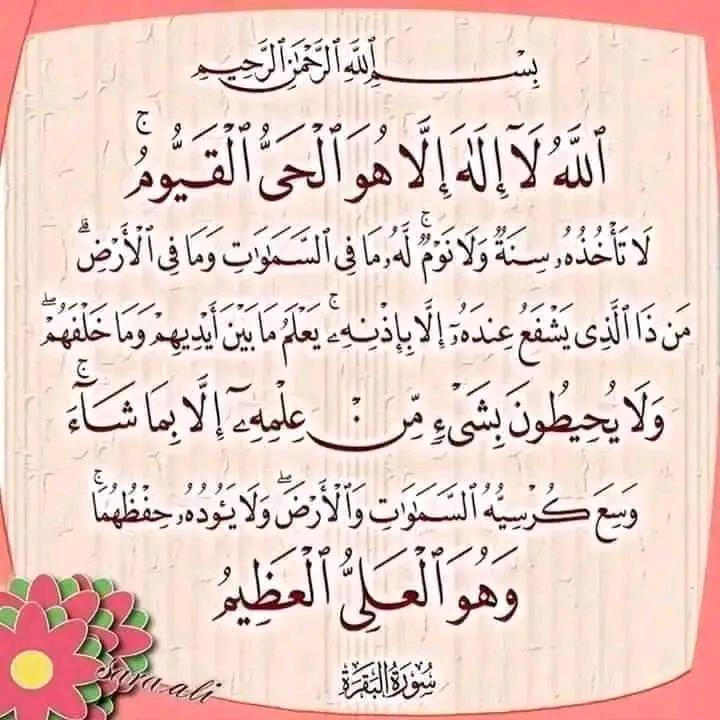 بِسْمِ ٱللَّهِ ٱلرَّحْمَٰنِ ٱلرَّحِيمِ
ٱللَّهُ لَآ إِلَٰهَ إِلَّا هُوَ ٱلْحَىُّ ٱلْقَيُّومُ ۚ
لَا تَأْخُذُهُۥ سِنَةٌ وَلَا نَوْمٌ ۚ لَّهُۥ مَا فِى ٱلسَّمَٰوَٰتِ وَمَا فِى ٱلْأَرْضِ ۗ
مَن ذَا ٱلَّذِى يَشْفَعُ عِندَهُۥٓ إِلَّا بِإِذْنِهِۦ ۚ يَعْلَمُ مَا بَيْنَ أَيْدِيهِمْ وَمَا خَلْفَهُمْ ۖ
وَلَا يُحِيطُونَ بِشَىْءٍ مِّنْ عِلْمِهِۦٓ إِلَّا بِمَا شَآءَ ۚ
وَسِعَ كُرْسِيُّهُ ٱلسَّمَٰوَٰتِ وَٱلْأَرْضَ ۖ وَلَا يَـُٔودُهُۥ حِفْظُهُمَا ۚ
وَهُوَ ٱلْعَلِىُّ ٱلْعَظِيمُ
سُورَةُ البَقَرَة
Sara ali